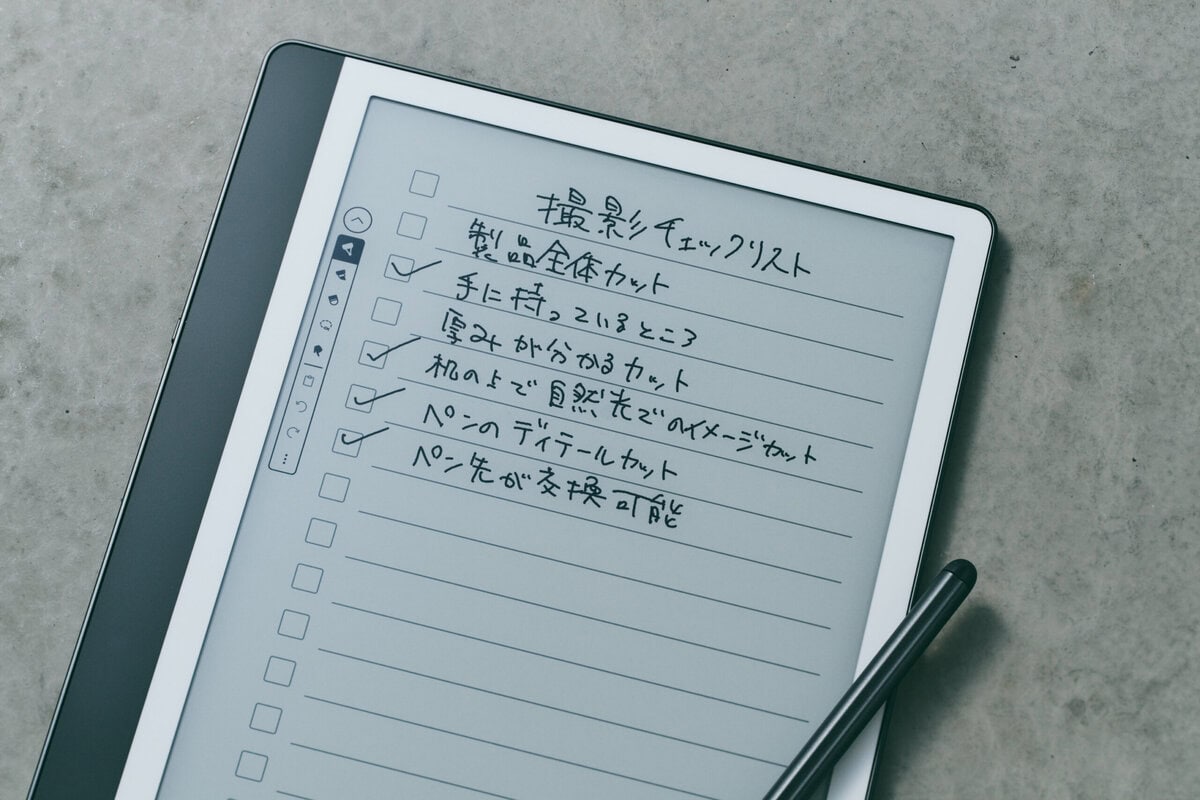 撮影チェックリスト
製品全体カット
手に持っているところ
厚みが分かるカット
机の上で自然光でのイメージカット
ペンのディテールカット
ペン先が交換可能